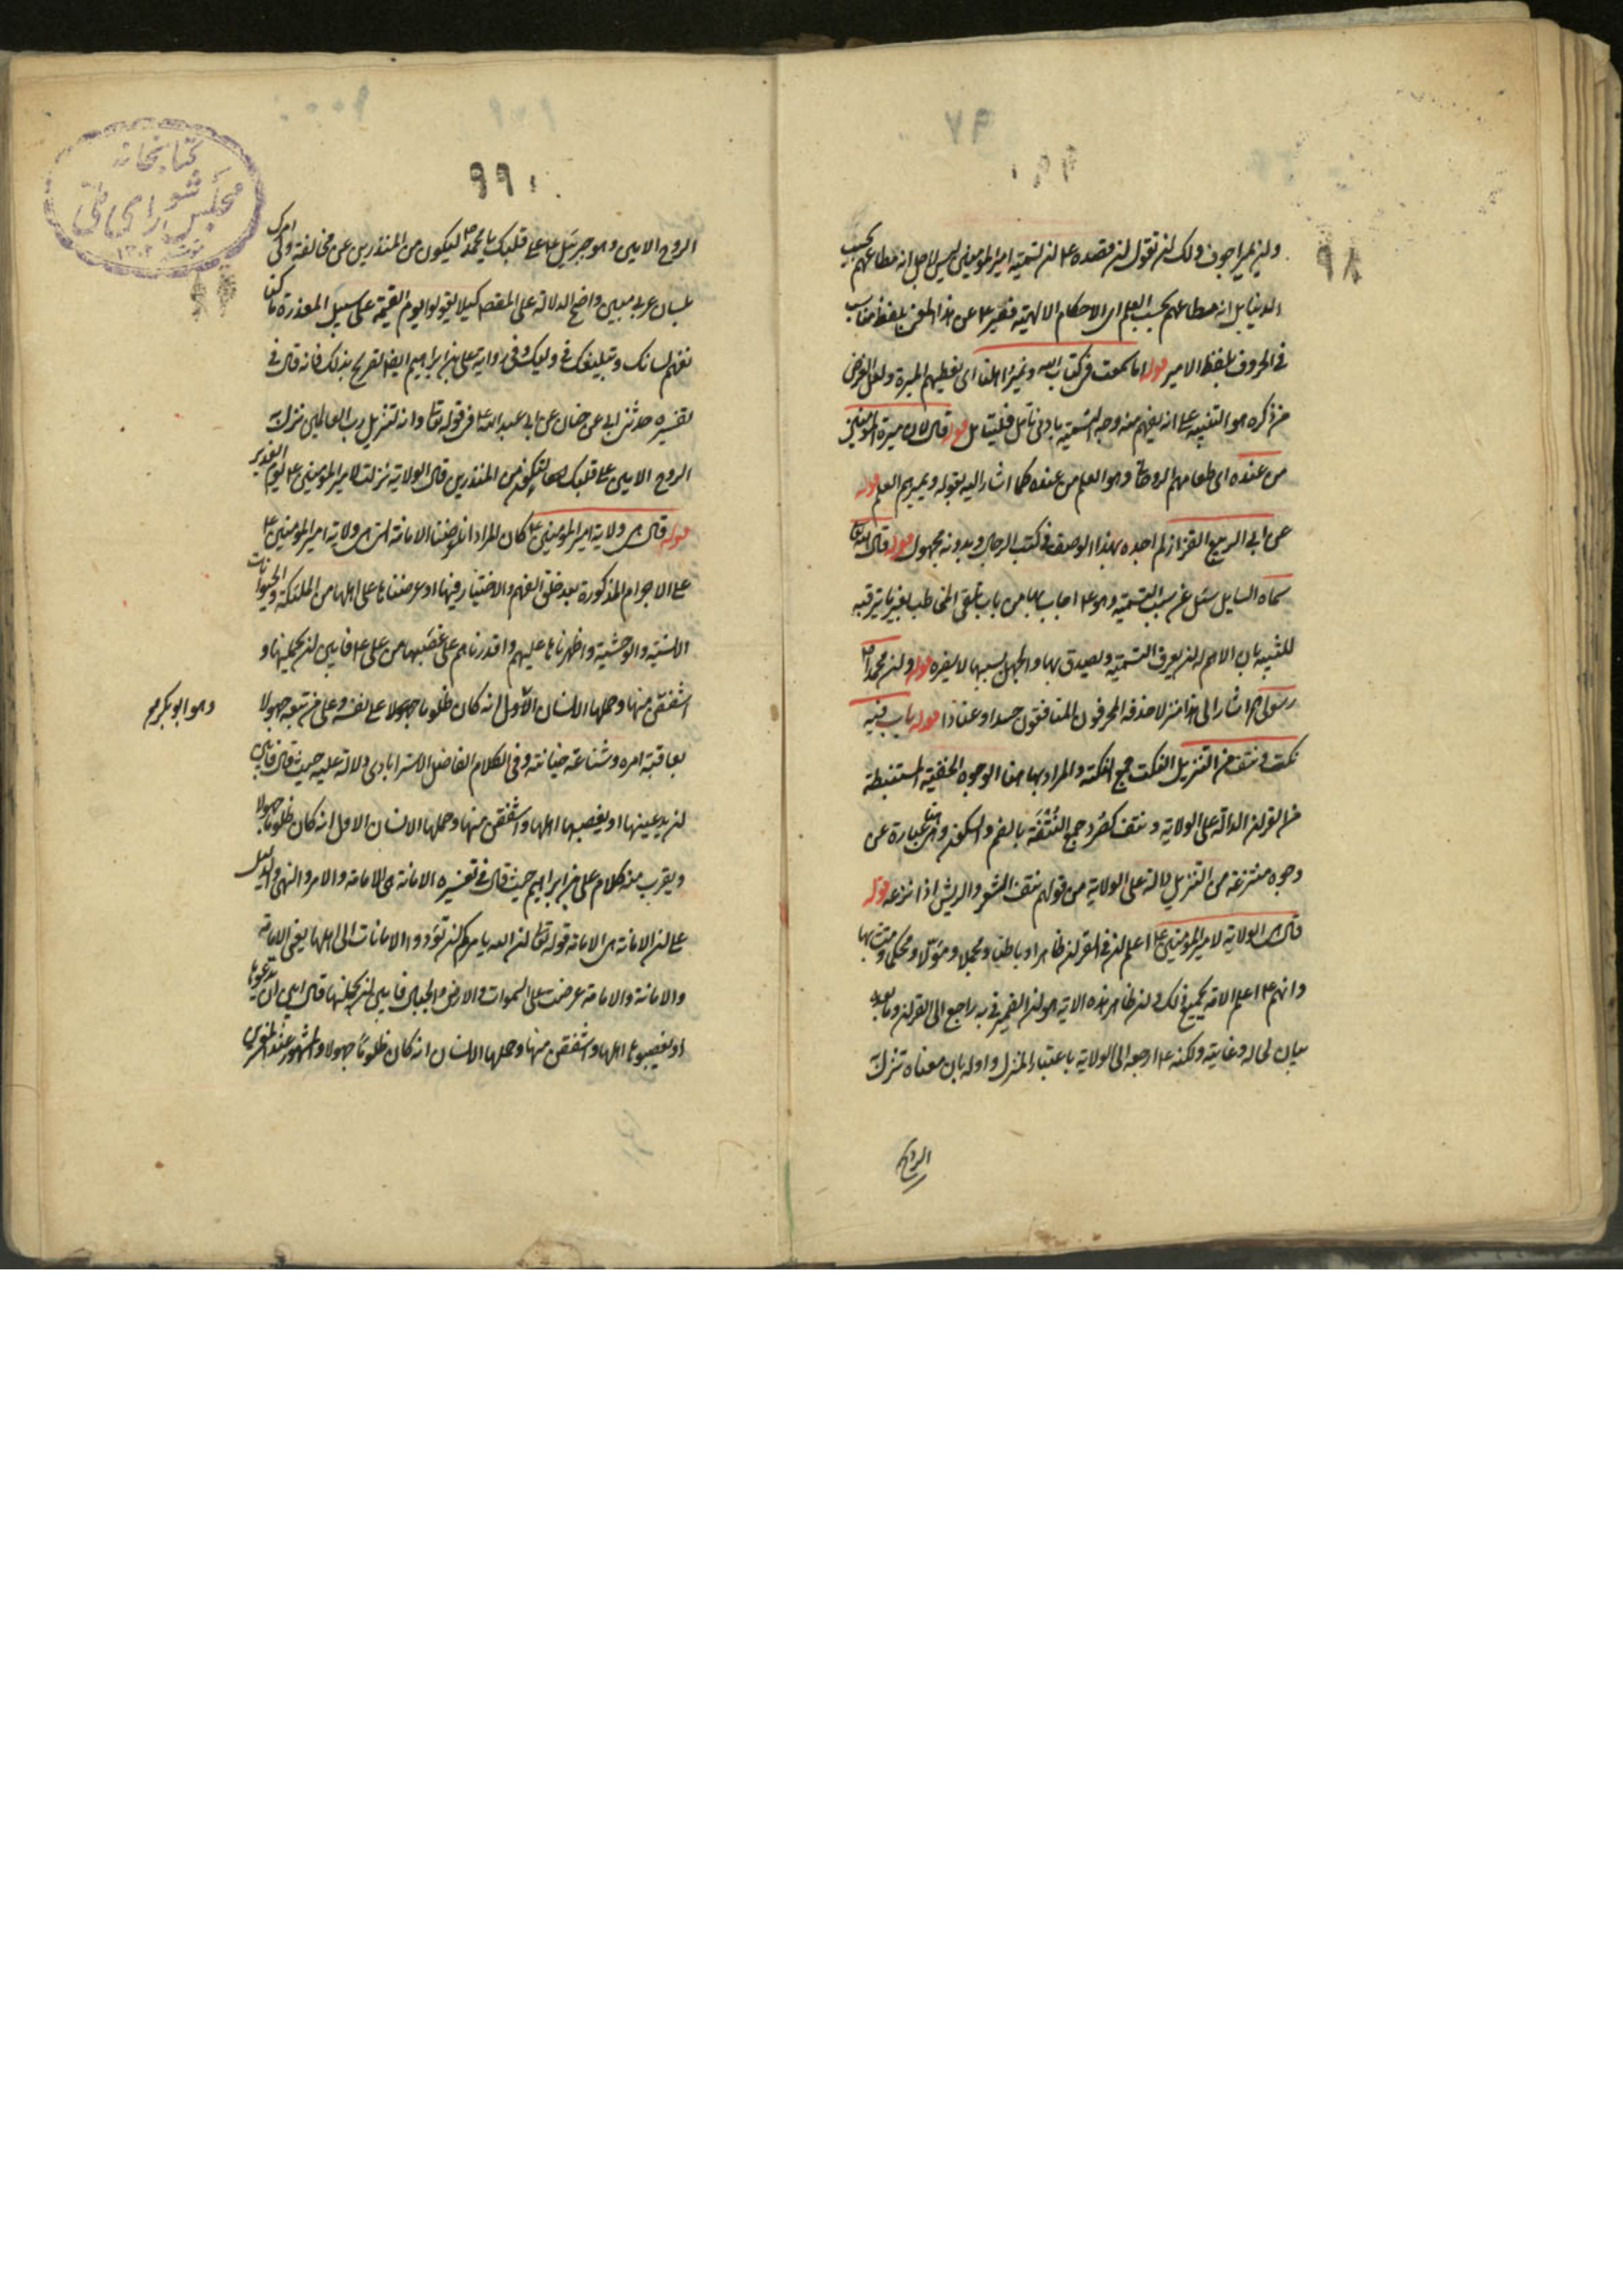 ولن يمير اجوف ولك لن تقول لن مقصده ع لن تسمية امير المومنين ليس لاجل انه مطاعهم بحسب
الدنيا بل انه مطاعهم بحسب العلم اى الاحكام الالهية فعبر ع عن هذا المعنى بلفظ مناسب
فى الحروف بلفظ الامير قوله اما سمعت فى كتاب الله ونمير اهلنا اى نعطيهم الميرة ولعل الغرض
من ذكره هو التنبيه على انه يفهم منه وجه التسمية بادنى تامل فليتامل قوله قال لان ميرة المومنين
من عنده اى طعامهم الروحانى وهو العلم من عنده كما اشار اليه بقوله ويميرهم العلم قوله
عن ابى الربيع القزاز لم اجده بهذا الوصف فى كتب الرجال وبدونه مجهول قوله قال الله
سماه السايل سئل عن سبب التسمية وهو ع اجاب بها من باب تلقى المخاطب بغير ما يترقبه
للتنبيه بان الاهم له لن يعرف التسمية ويصدق بها والجهل بسببها لا يضره قوله ولن محمدا
رسولى اشار الى هذا منزلا حذفه المحرفون المنافقون حسدا وعنادا قوله باب فيه
نكت ونتف من التنزيل النكت جمع النكتة والمراد بها هنا الوجوه الخفية المستنبطة
من القرلن الدالة على الولاية ونتف كصرد جمع النتفة بالضم والسكون وهى هنا عبارة عن
وجوه منتزعة من التنزيل دالة على الولاية من قولهم نتف الشعر والريش اذا نزعه قوله
قال هى الولاية لامير المومنين ع اعلم لن فى القرلن ظاهرا وباطنا ومجملا ومؤولا ومحكما ومتشابها
وانهم ع اعلم الامة بجميع ذلك ولن ظاهر هذه الاية هو لن الضمير فى به راجع الى القرلن وما بعده
بيان لحاله وغايته ولكنه ع ارجعه الى الولاية باعتبار المنزل واوله بان معناه نزل
الروح
الروح الامين وهو جبرئيل ع على قلبك يا محمد ص ليكون من المنذرين عن مخالفته
بلسان عربى مبين واضح الدلالة على المقصد كيلا يقولوا يوم القيمة على سبيل المعذرة ما كنا
نفهم لسانك وتبليغك وفى رواية على بن ابراهيم ايضا تصريح بذلك فانه قال فى
تفسيره حدثنى ابى عن حنان عن ابى عبد الله ع فى قوله تعالى وانه لتنزيل رب العالمين نزل
الروح الامين على قلبك لتكون من المنذرين قال الولاية نزلت لامير المومنين ع يوم الغدير
قوله قال هى ولاية امير المومنين ع كان المراد انا عرضنا الامانة التى هى ولاية امير المومنين ع
على الاجرام المذكورة بعد خلق الفهم والاختيار فيها او عرضناها على اهلها من الملئكة والحيوانات
الانسية والوحشية واظهرناها عليهم واقدرناهم على غصبها من على ع فابين لن يحملنها و
اشفقن منها وحملها الانسان الاول انه كان ظلوما جهولا على نفسه وعلى من تبعه جهولا
وهو ابو بكر
بعاقبة امره وشناعة خيانته وفى كلام الفاضل الاسترابادى دلالة عليه حيث قال فابين
لن يدعينها او يغصبها اهلها واشفقن منها وحملها الانسان الاول انه كان ظلوما جهولا
ويقرب منه كلام على بن ابراهيم حيث قال فى تفسيره الامانة هى الامامة والامر والنهى والدليل
على لن الامانة هى الامامة قوله تعالى لن الله يامركم لن تؤدوا الامانات الى اهلها يعنى الامامة
والامانة والامامة عرضت على السموات والارض والجبال فابين لن يحملنها قال ابين ان يدعوها
او يغصبوها اهلها واشفقن منها وحملها الانسان انه كان ظلوما جهولا والمشهور عند المفسرين
كتابخانه
مجلس شوراى ملى